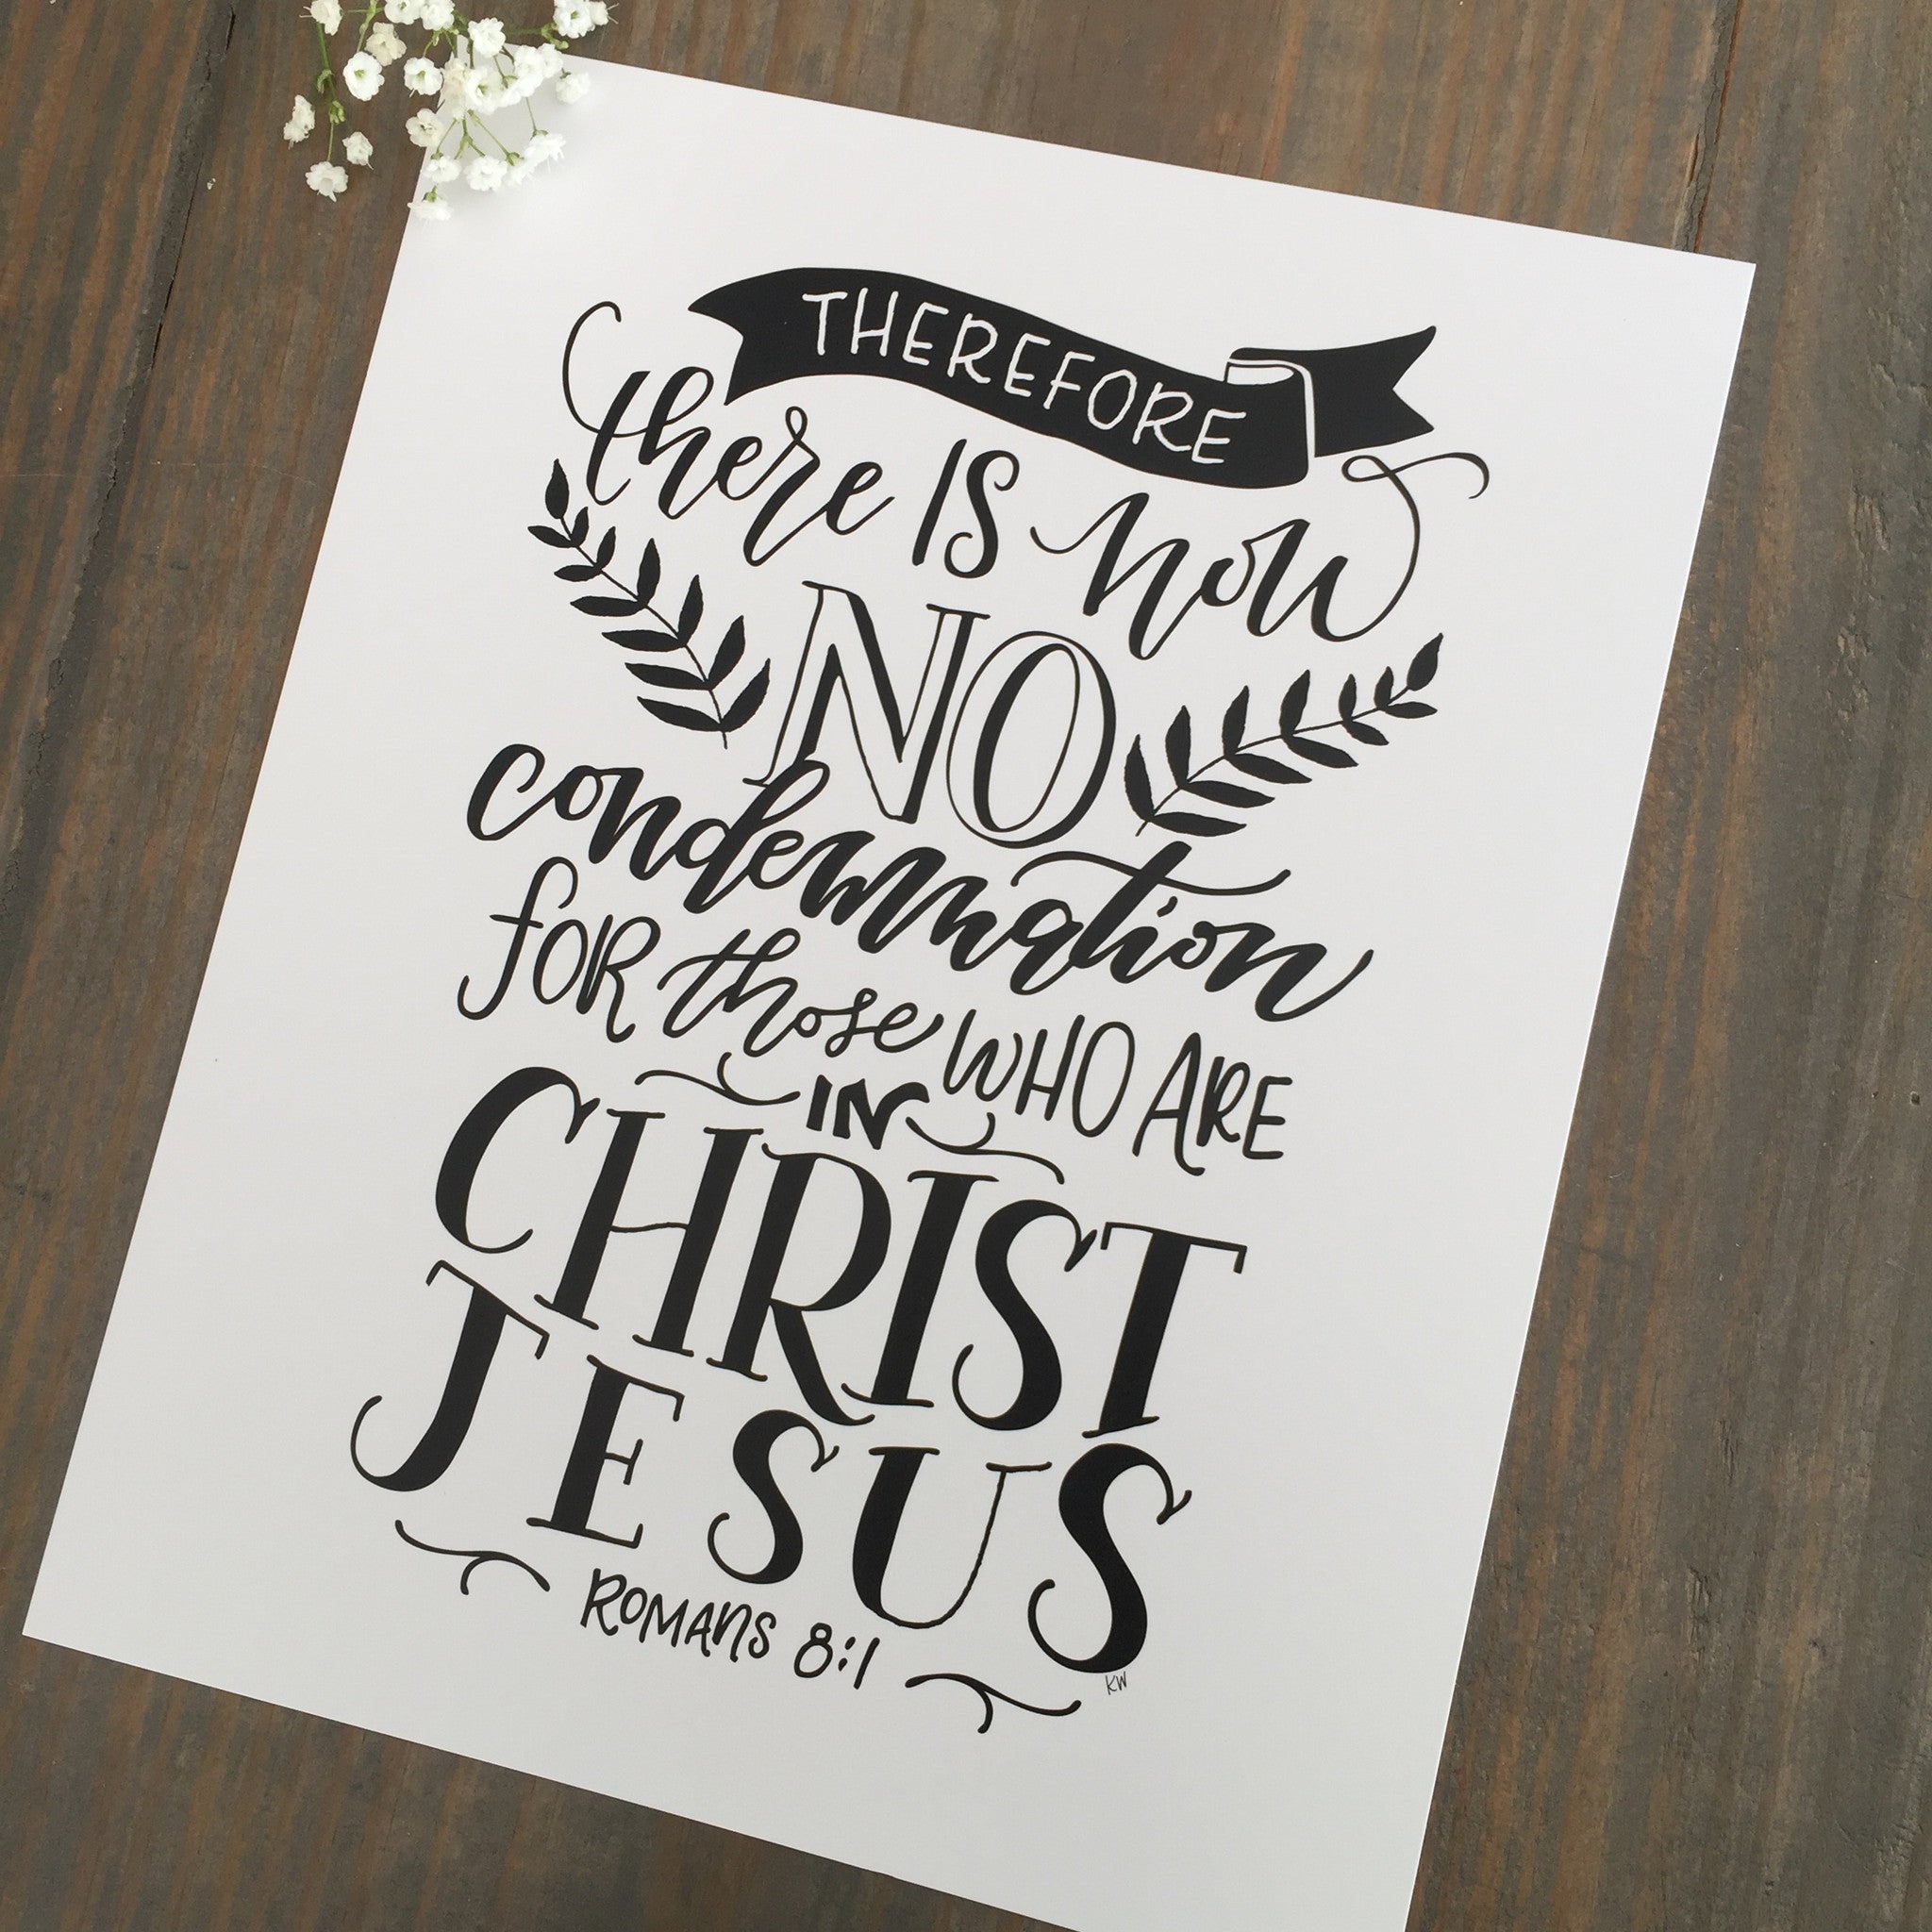 THEREFORE
there IS now
NO
condemnation
for those WHO ARE
IN
CHRIST
JESUS
ROMANS 8:1
KW